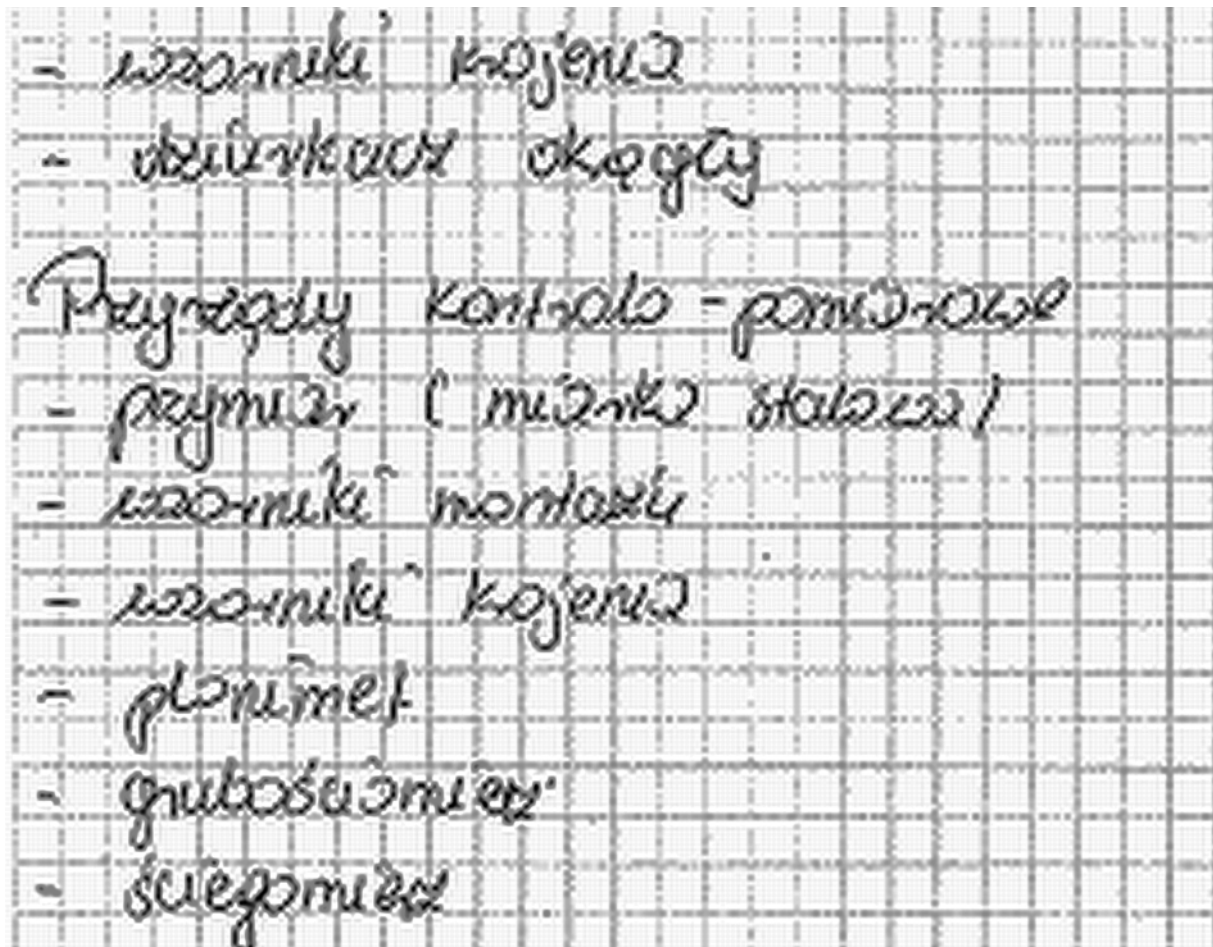 - wzorniki krojenia
- dziurkacz okągły
Przyrządy kontrolo - pomiarowe
- przymiar ( miarka stalowa )
- wzorniki montażu
- wzorniki krojenia
- planimet
- grubościomierz
- ściegomierz